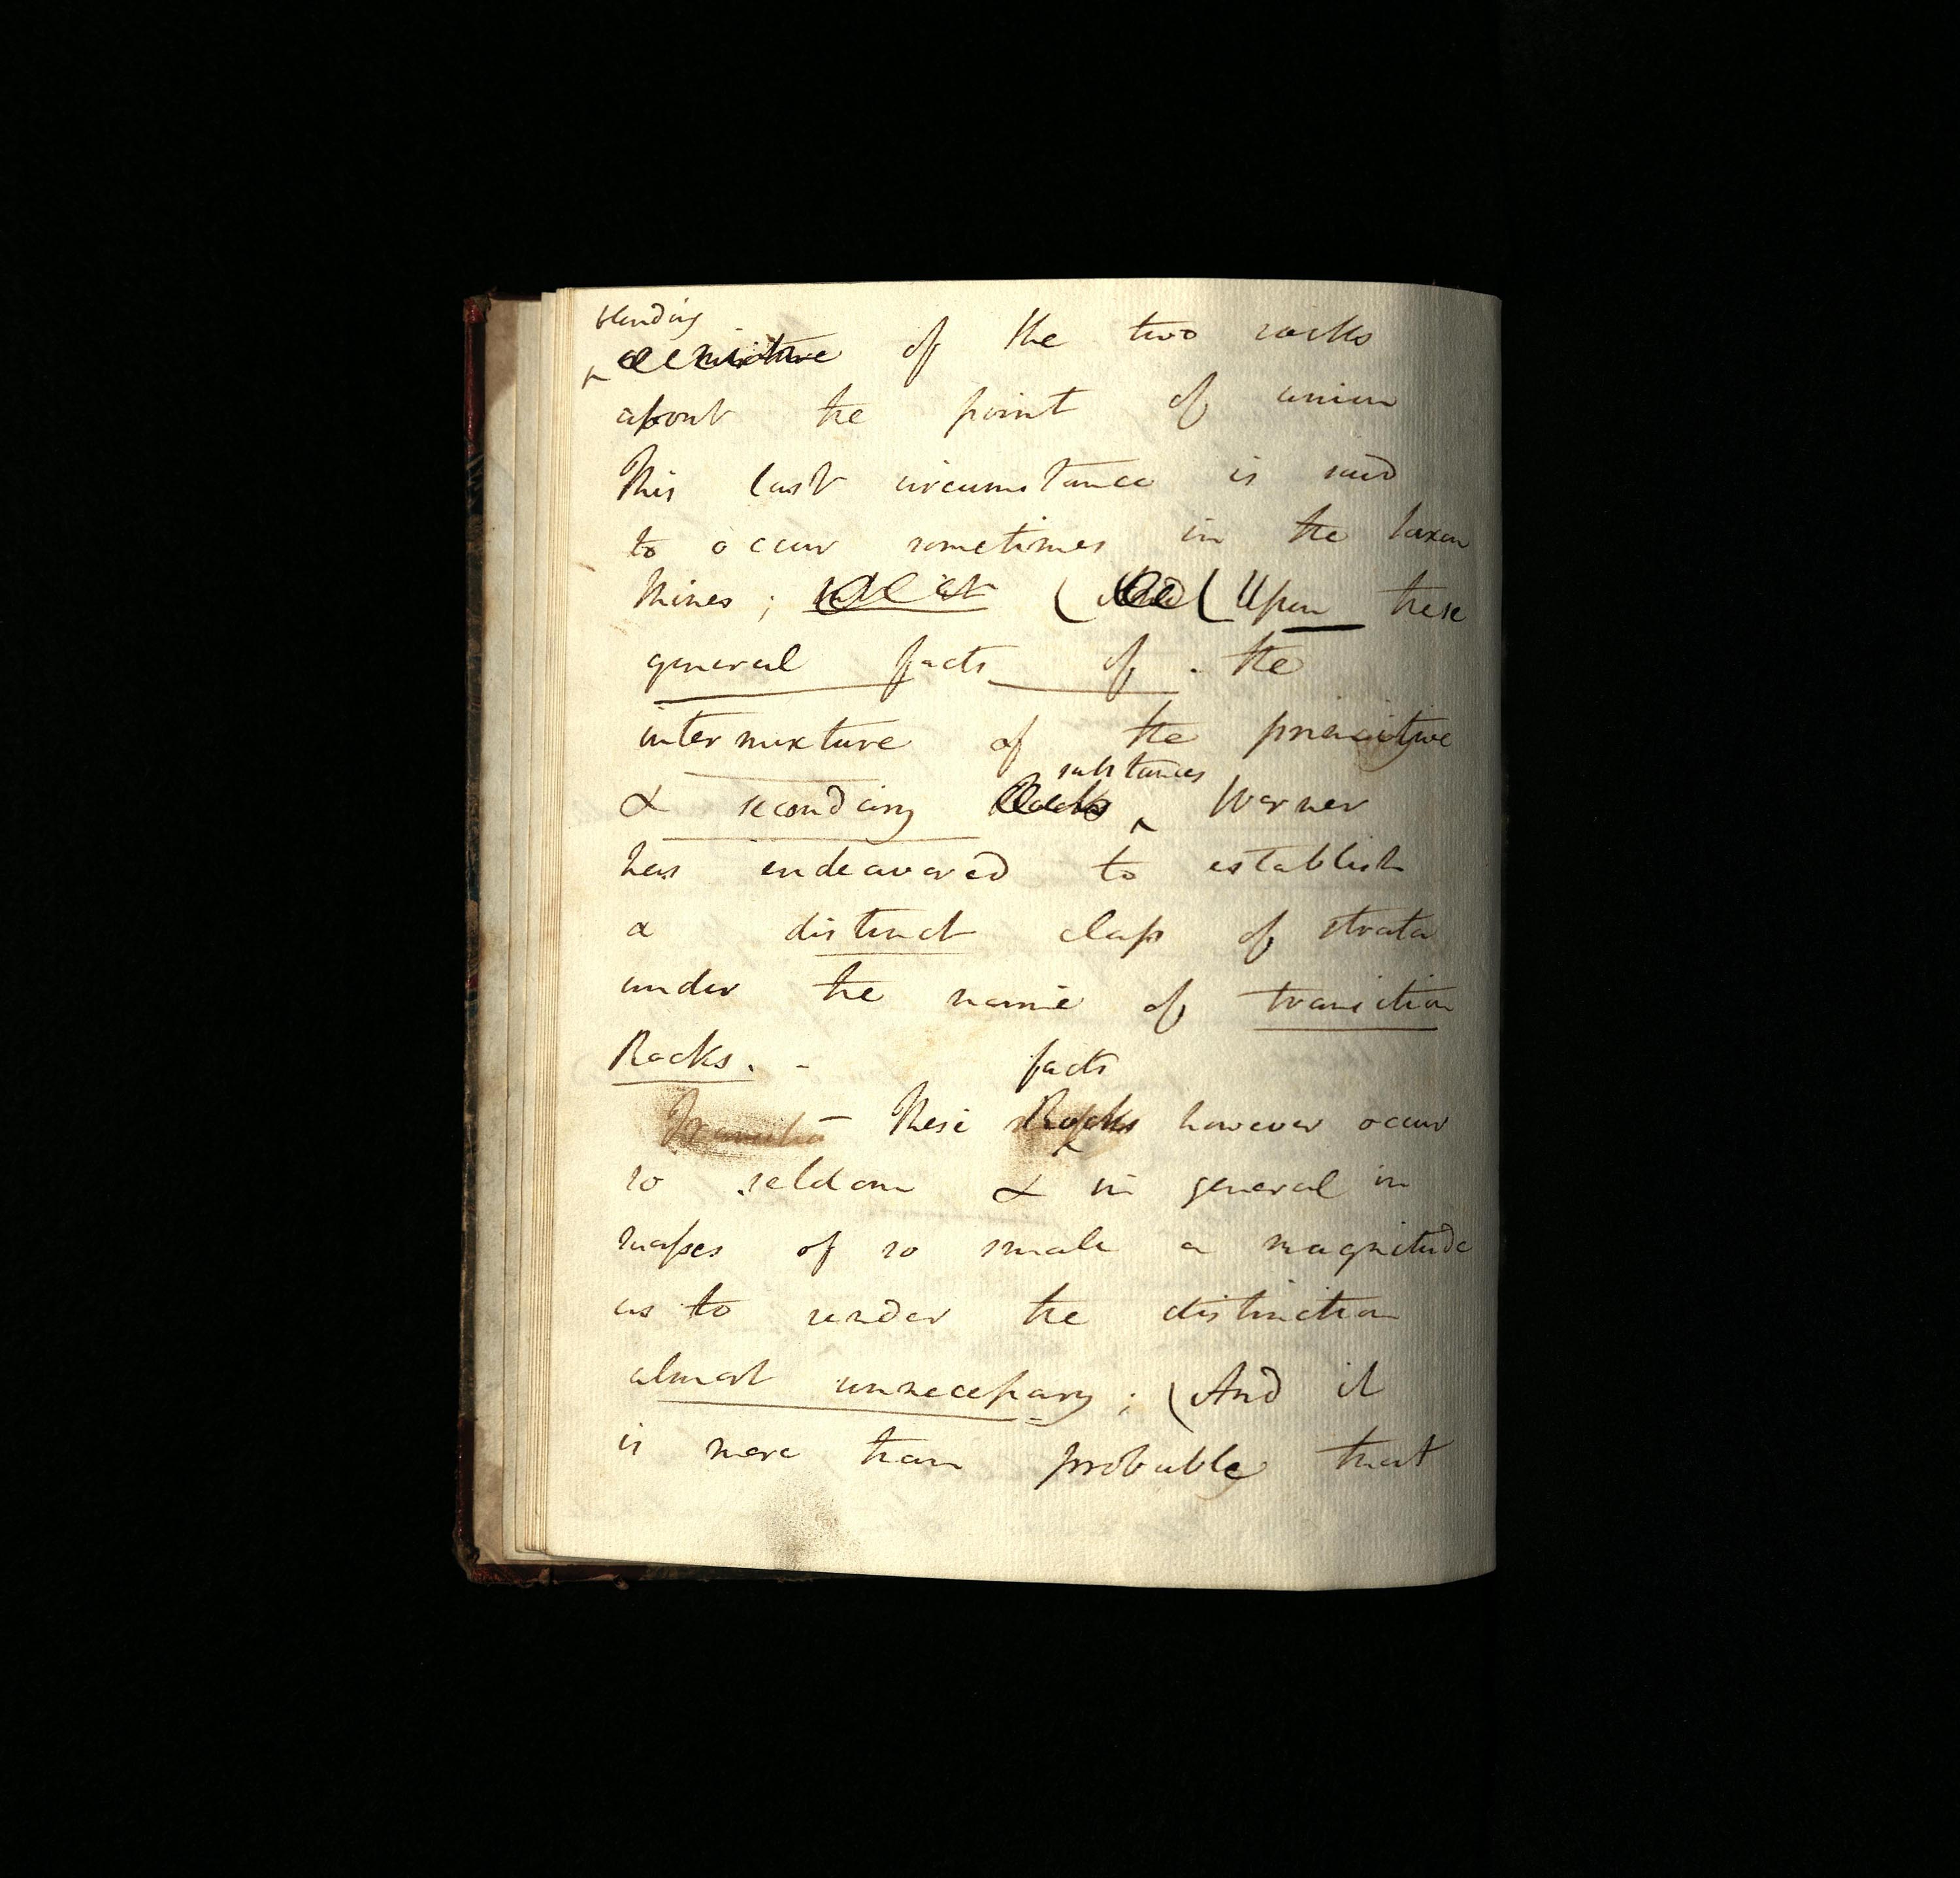 blending
a mixture of the two rocks
about the point of union
This last circumstance is said
to occur sometimes in the Saxon
Mines; (And (Upon these
general facts of - the
intermixture of the primitive
substances
& secondary Rocks ^ Werner
has endeavored to establish
a distinct class of strata
under the name of transition
Rocks. -
facts
Transition - These Rocks however occur
so seldom & in general in
masses of so small a magnitude
as to render the distinction
almost unnecessary; (And it
is more than probable that